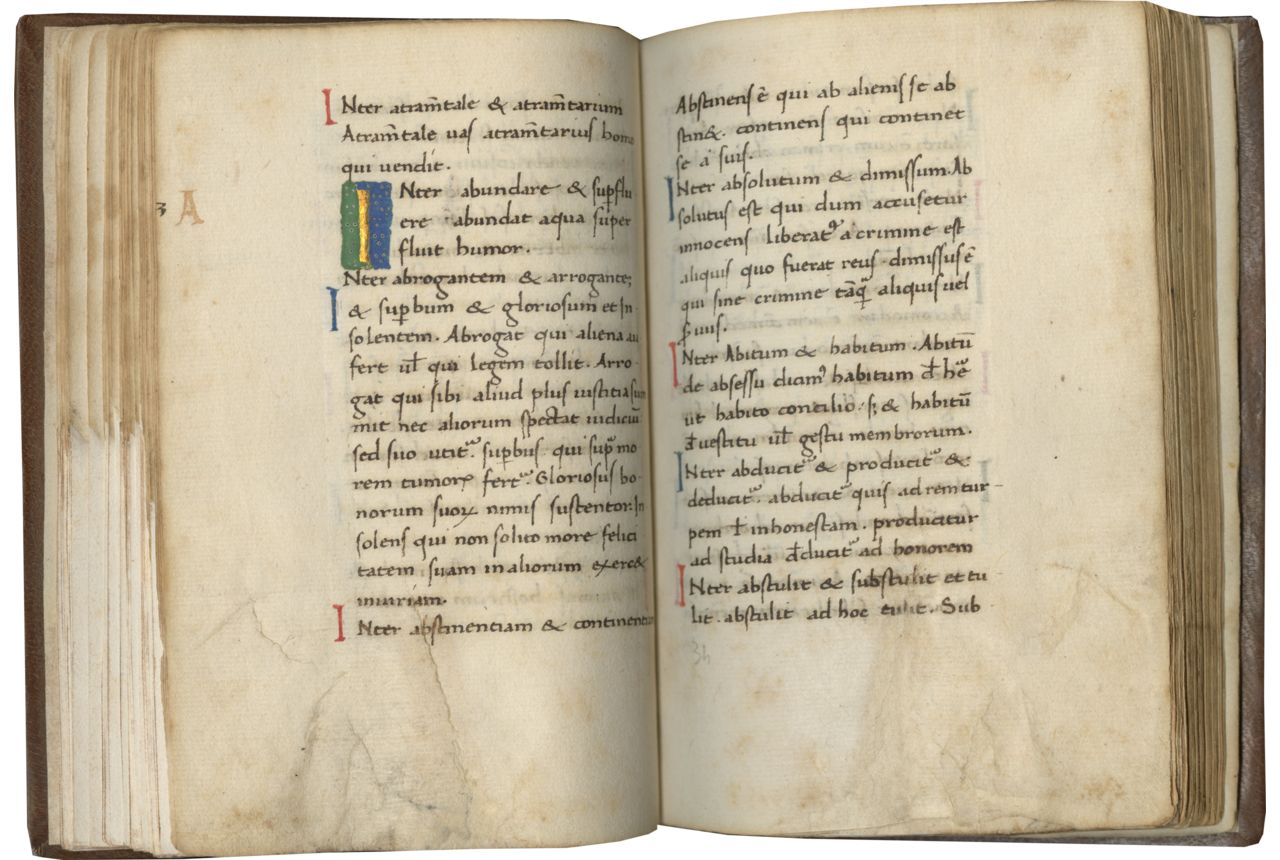 3 A
INter atram̄tale & atram̄tarium
Atram̄tale uas atram̄tarius homo
qui uendit.
INter abundare & sup̄flu
ere abundat aqua super
fluit humor.
INter abrogantem & arrogantē;
& sup̄bum & gloriosum et In
solentem. Abrogat qui aliena au
fert ul̄ qui legem tollit. Arro-
gat qui sibi aliud plus iustitia sum
mit nec aliorum spectat iudiciū
sed suo utit᷑. sup̄bus qui sup̄ mo
rem tumorꝝ fert᷑. Gloriosus bo-
norum suoꝝ nimis sustentor. In
solens qui non solito more felici
tatem suam in aliorum exerc&
iniuriam.
INter abstinentiam & continentiā
Abstinens ē qui ab alienis se ab
stin&. continens qui continet
se a suis.
INter absolutum & dimissum. Ab
solutus est qui dum accusetur
innocens liberat᷑ a crimine est
aliquis quo fuerat reus. dimissus ē
qui sine crimine tāq̄ aliquis uel
INter Abitum & habitum. Abitū
de absessu dicimꝰ habitum
ut habito concilio. s; & habitū
đ uestitu ul̄ gestu membrorum.
INter abducit᷑ & producit᷑ &
deducit᷑. abducit᷑ quis ad rem tur-
pem ł inhonestam. producitur
ad studia đducit᷑ ad honorem
INter abstulit & substulit et tu
lit. abstulit ad hoc tulit. Sub
34